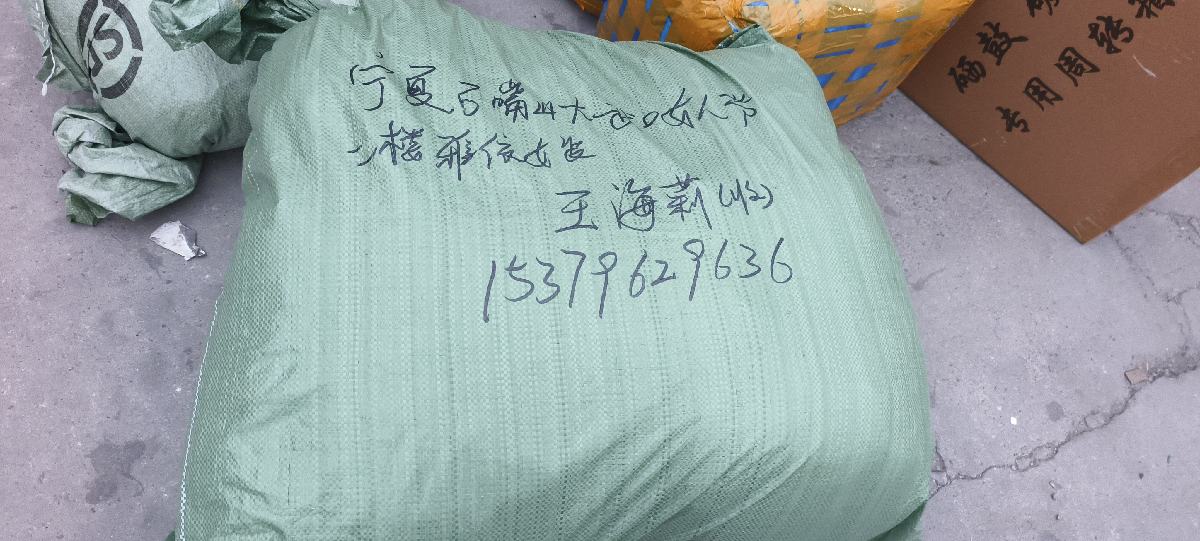 宁夏石嘴山大武口女人街
二楼雅依女装
王海莉(收)
15379629636
硒鼓
专用周转箱